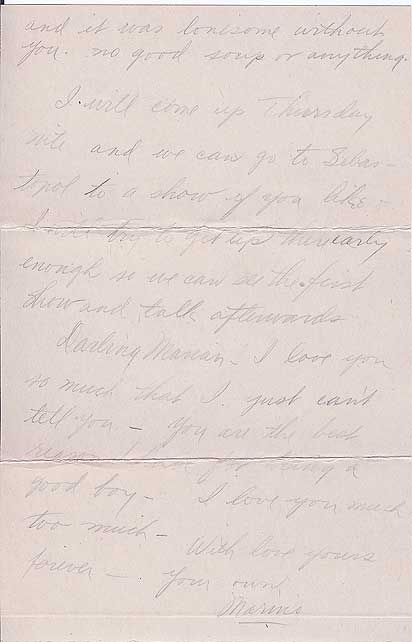 and it was lonesome without
you. no good soup or anything.
I will come up Thursday
nite and we can go to Sebas-
topol to a show if you like -
I will try to get up there early
enough so we can see the first
show and talk afterwards
Darling Marian - I love you
so much that I just can't
tell you - You are the best
reason I have for being a
good boy - I love you much
too much -
With love yours
forever - Your own
Marvis